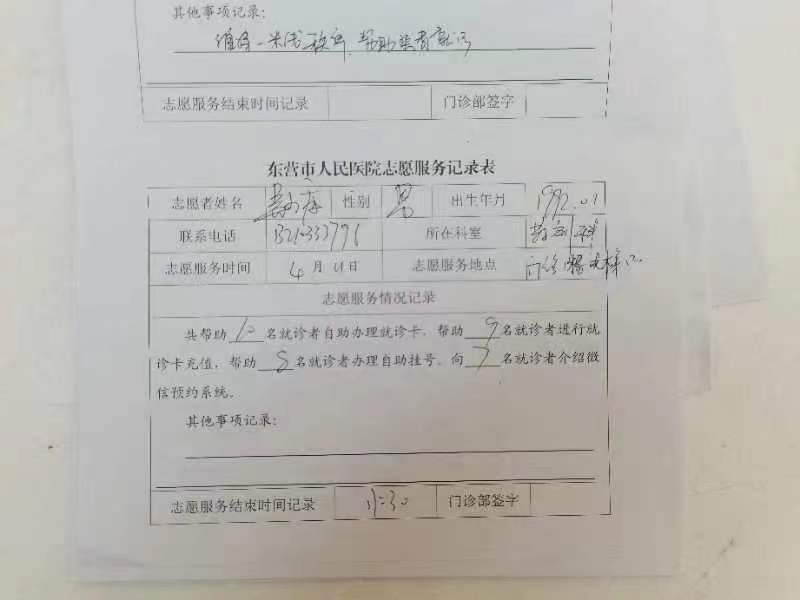 其他事项记录：
维持一米线秩序，帮助患者就诊
志愿服务结束时间记录 门诊部签字
东营市人民医院志愿服务记录表
志愿者姓名 性别 男 出生年月 1992.01
联系电话 所在科室
志愿服务时间 4月 日 志愿服务地点 门诊
志愿服务情况记录
共帮助10名就诊者自助办理就诊卡，帮助9名就诊者进行就
诊卡充值，帮助8名就诊者办理自助挂号。向7名就诊者介绍微
信预约系统。
其他事项记录：
志愿服务结束时间记录 11:30 门诊部签字